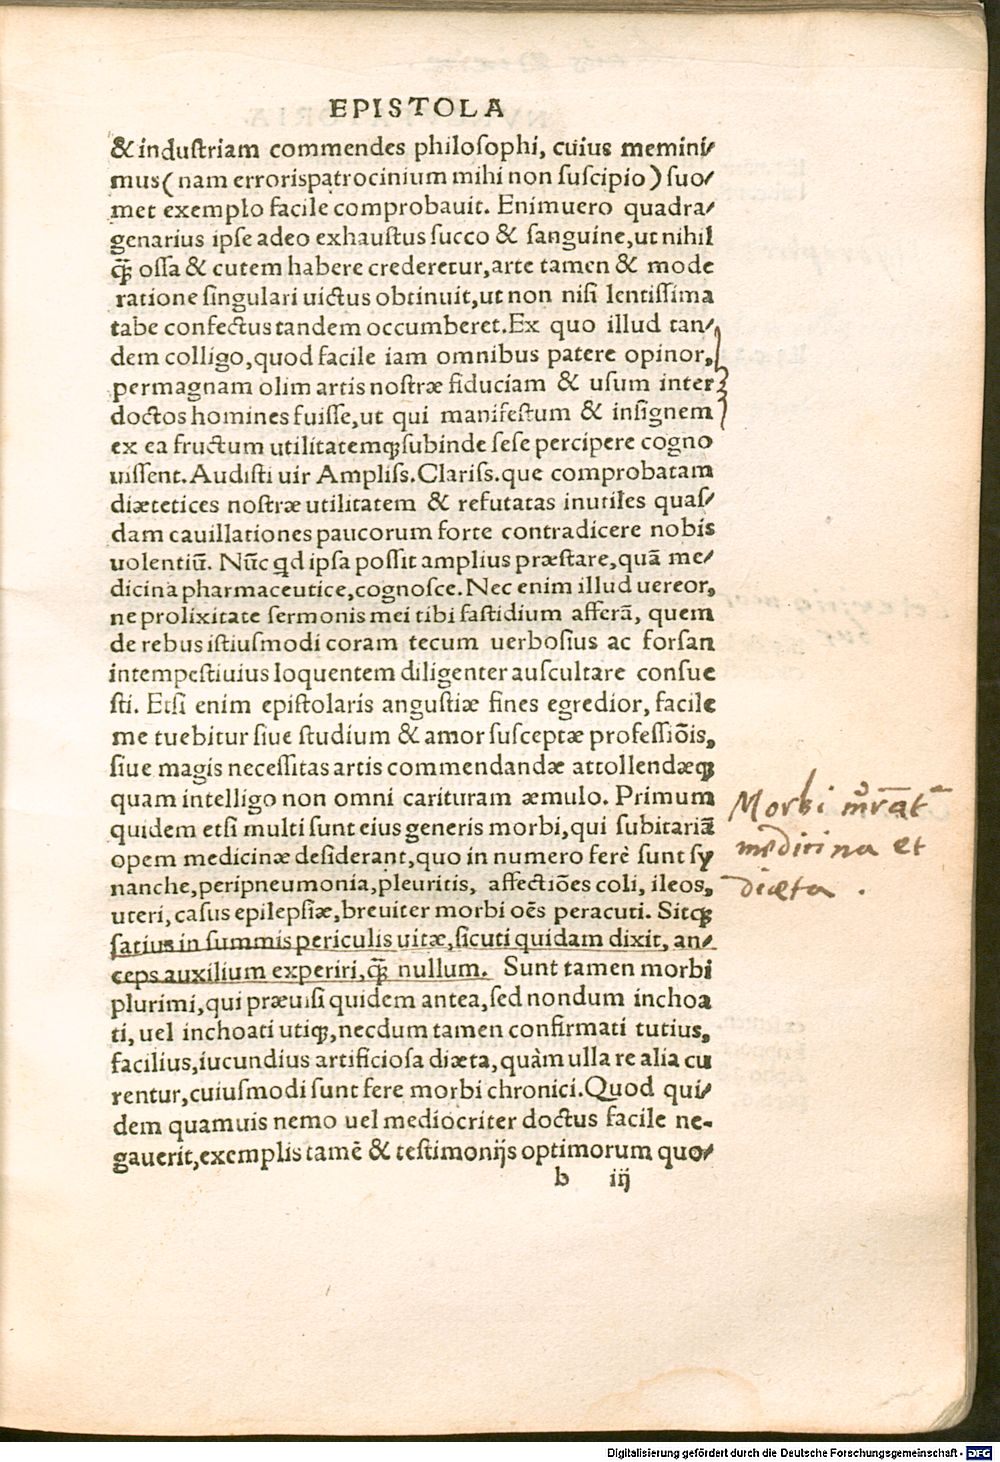 EPISTOLA
& induſtriam commendes philoſophi, cuius memini⸗
mus (nam errorispatrocinium mihi non ſuſcipio) ſuo⸗
met exemplo facile comprobauit. Enimuero quadra⸗
genarius ipſe adeo exhauſtus ſucco & ſanguine, ut nihil
q̃ƺ oſſa & cutem habere crederetur, arte tamen & mode
ratione ſingulari uictus obtinuit, ut non niſi lentiſſima
tabe confectus tandem occumberet. Ex quo illud tan⸗
dem colligo, quod facile iam omnibus patere opinor,
permagnam olim artis noſtræ fiduciam & uſum inter
doctos homines fuiſſe, ut qui manifeſtum & inſignem
ex ea fructum utilitatemqƺ ſubinde ſeſe percipere cogno
uiſſent. Audiſti uir Ampliſs. Clariſs. que comprobatam
diætetices noſtræ utilitatem & refutatas inutiles quaſ⸗
dam cauillationes paucorum forte contradicere nobis
uolentiũ. Nũc qd ipſa poſſit amplius præſtare, quã me⸗
dicina pharmaceutice, cognoſce. Nec enim illud uereor,
ne prolixitate ſermonis mei tibi faſtidium afferã, quem
de rebus iſtiuſmodi coram tecum uerboſius ac forſan
intempeſtiuius loquentem diligenter auſcultare conſue
ſti. Etſi enim epiſtolaris anguſtiæ fines egredior, facile
me tuebitur ſiue ſtudium & amor ſuſceptæ profeſſiõis,
ſiue magis neceſſitas artis commendandæ attollendæqƺ
quam intelligo non omni carituram æmulo. Primum
quidem etſi multi ſunt eius generis morbi, qui ſubitariã
opem medicinæ deſiderant, quo in numero ferè ſunt ſy
nanche, peripneumonia, pleuritis, affectiões coli, ileos,
uteri, caſus epilepſiæ, breuiter morbi oẽs peracuti. Sitqƺ
ſatius in ſummis periculis uitæ, ſicuti quidam dixit, an⸗
ceps auxilium experiri, q̃ƺ nullum. Sunt tamen morbi
plurimi, qui præuiſi quidem antea, ſed nondum inchoa
ti, uel inchoati utiqƺ, necdum tamen confirmati tutius,
facilius, iucundius artificioſa diæta, quàm ulla re alia cu
rentur, cuiuſmodi ſunt fere morbi chronici. Quod qui⸗
dem quamuis nemo uel mediocriter doctus facile ne-
gauerit, exemplis tamẽ & teſtimonijs optimorum quo⸗
b iij
Morbi
medicina et
diæta.
Digitalisierung gefördert durch die Deutsche Forschungsgemeinschaft - DFG